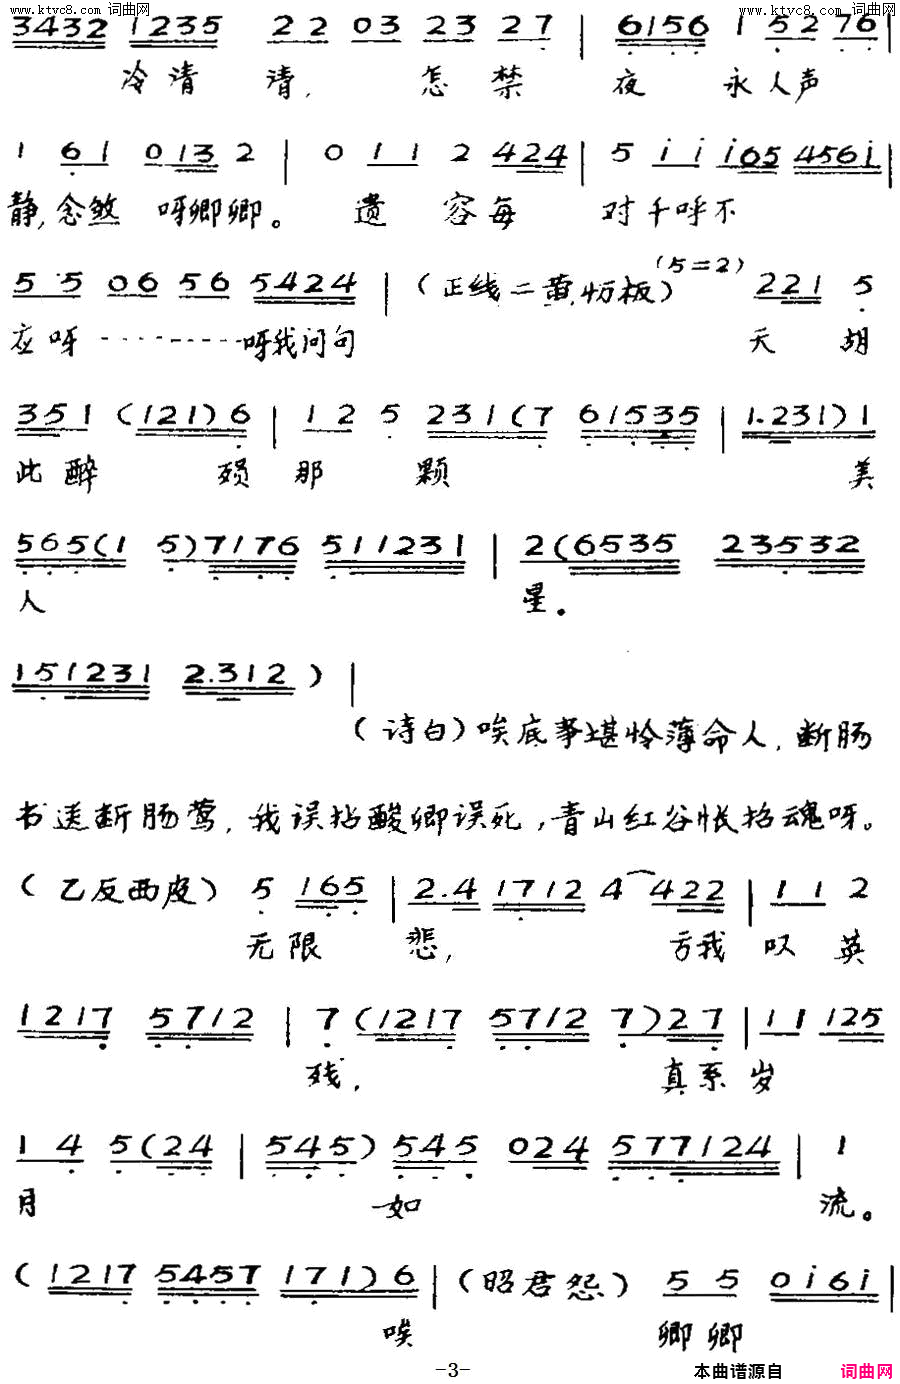 www.ktvc8.com 词曲网 www.ktvc8.com 词曲网
3432 1235 22 03 23 27 | 6156 1 52 76 |
冷清 清, 怎 禁 夜 永人声
1 61 0132 | 011 2424 | 5 i i i65 456i |
静,念煞 呀卿卿。 遗 容每 对千呼不
5 5 06 56 5424 | (正线二黄,慢板) (5=2) 221 5
应呀- - - - - - - - -呀我问句 天 胡
351 (121)6 | 12 5 231(7 61535 | 1.231)1
此醉 殒那 颗 美
565(1 5)7176 511231 | 2(6535 23532
人 星。
151231 2.312 ) |
(诗白)唉底事堪怜薄命人,断肠
书送断肠莺,我误拈酸卿误死,青山红谷怅招魂呀。
(乙反西皮) 5 165 | 2.4 1712 4 422 | 11 2
无限 悲, 亏我 叹英
1217 5712 | 7 (1217 5712 7)27 | 11 125
残, 真系岁
14 5(24 | 545)545 024 577124 | 1
月 如 流。
(1217 5457 171)6 | (昭君怨) 55 0i6i |
唉 卿卿
-3- 本曲谱源自 词曲网